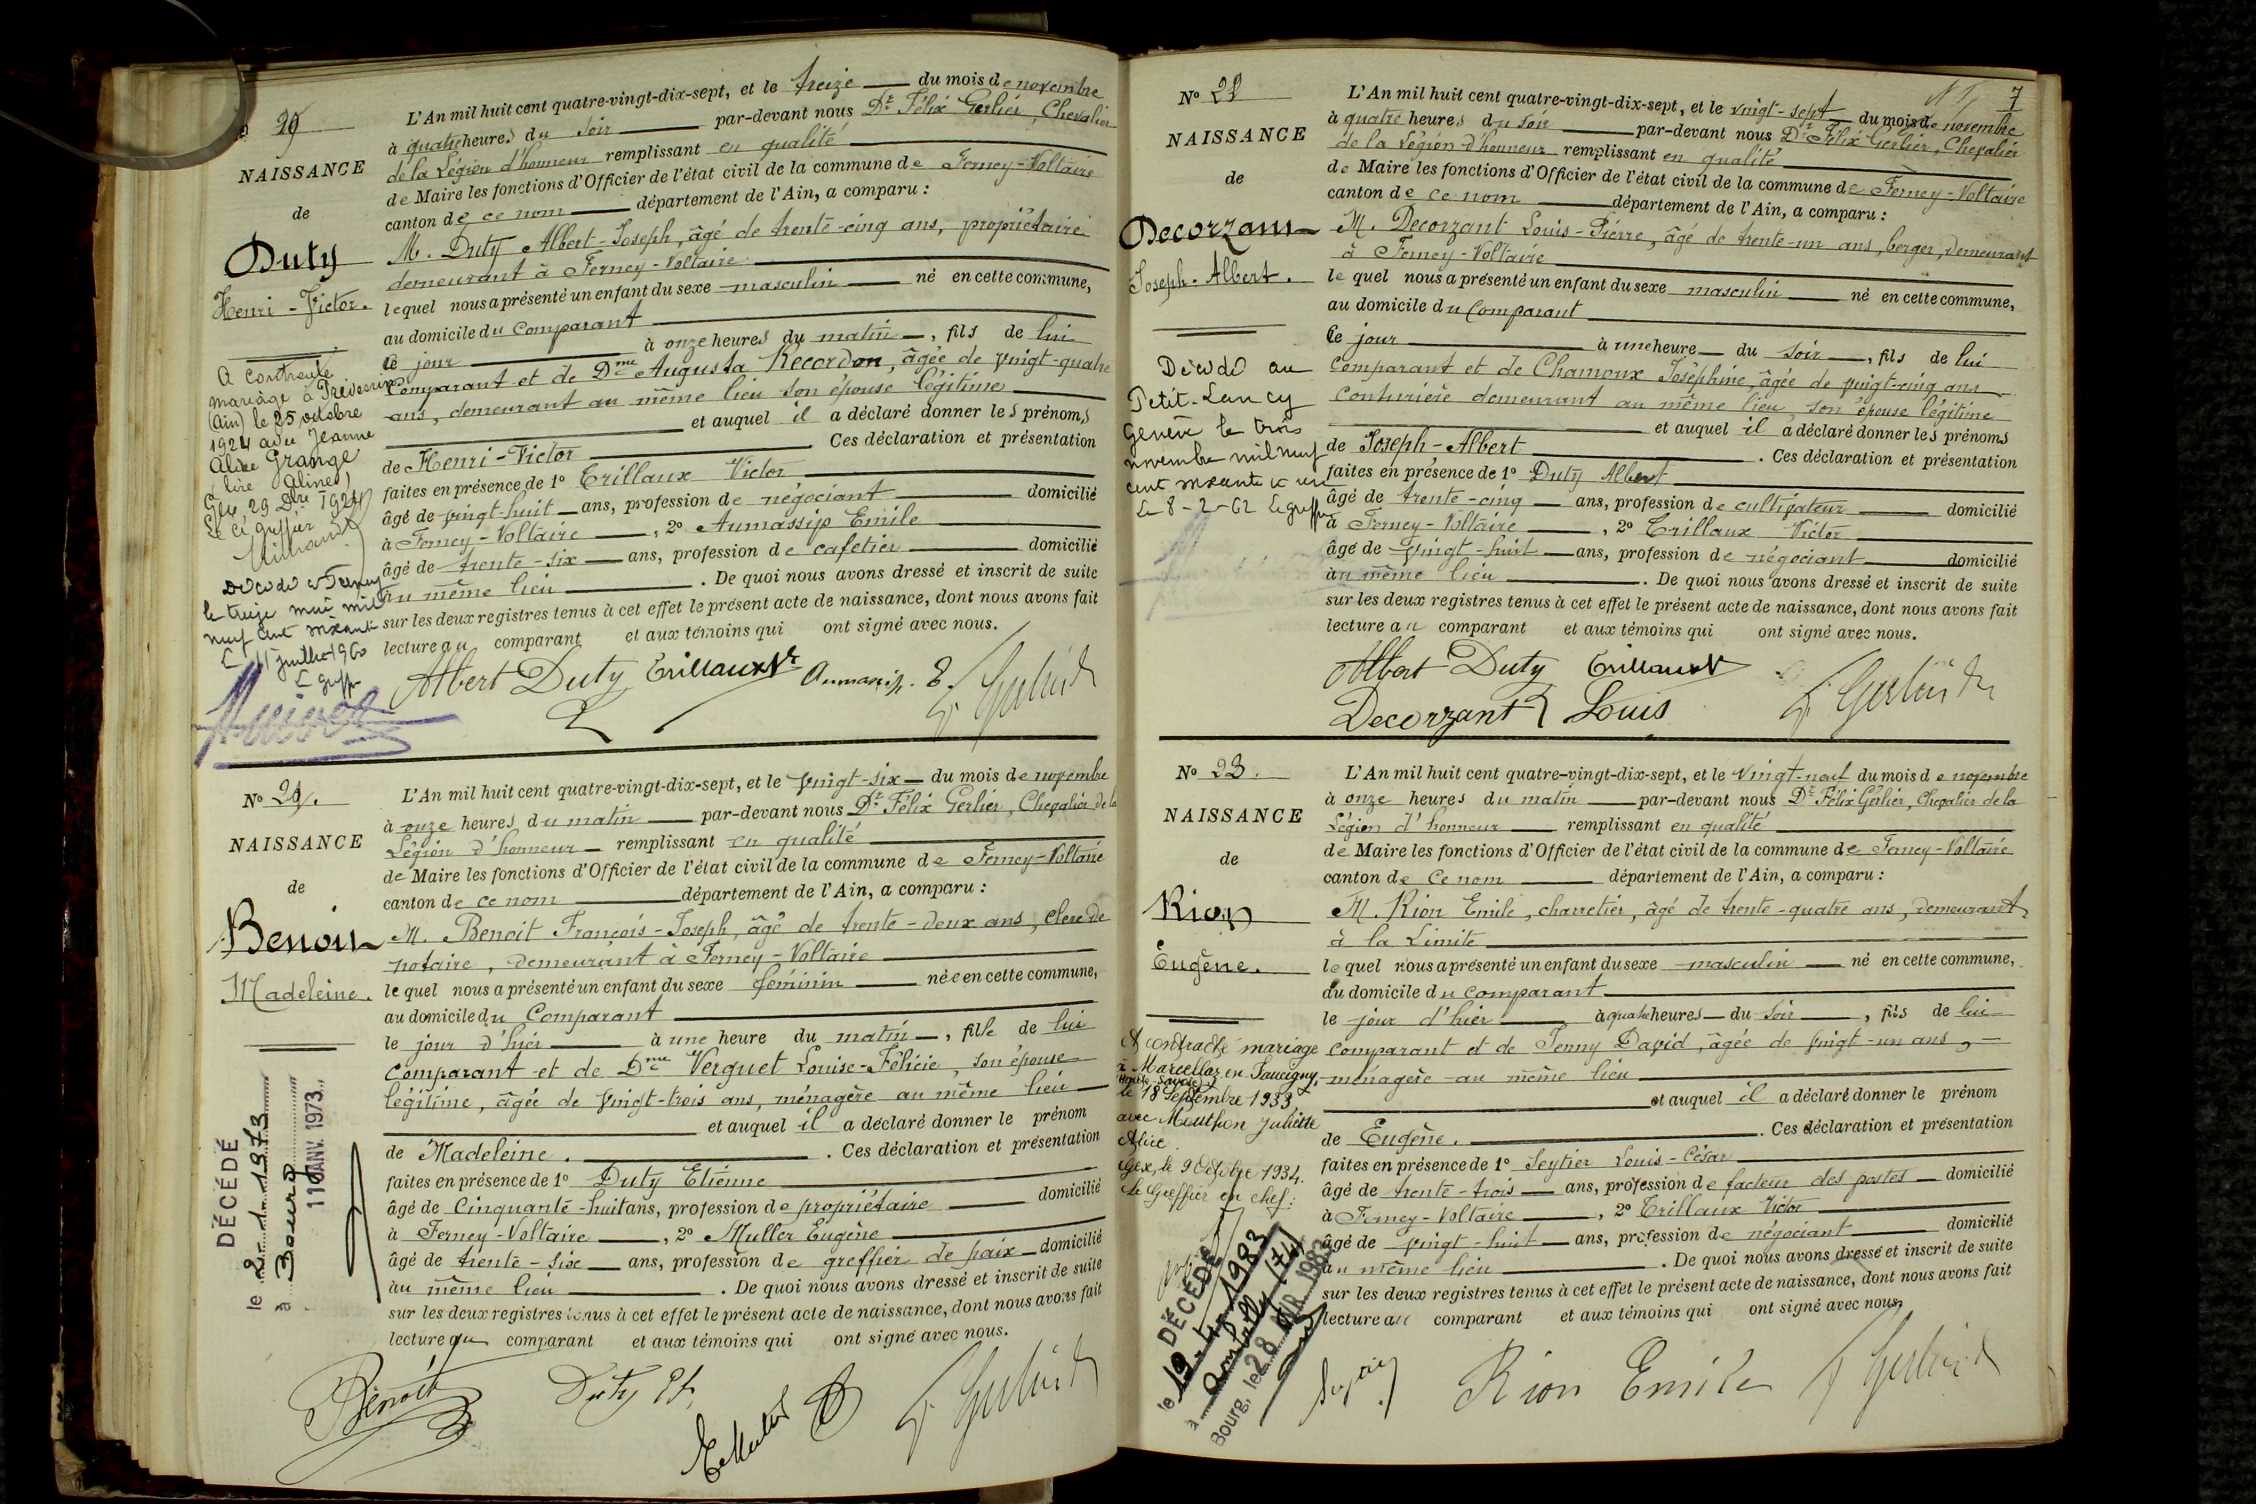 20
NAISSANCE
de
Duty
Henri-Victor.
L'An mil huit cent quatre-vingt-dix-sept, et le treize du mois de novembre
à quatre heures du soir par-devant nous Dr Félix Gerlier, Chevalier
de la Légion d'honneur remplissant en qualité
de Maire les fonctions d'Officier de l'état civil de la commune de Ferney-Voltaire
canton de ce nom département de l'Ain, a comparu :
M. Duty Albert-Joseph, âgé de trente-cinq ans, propriétaire
demeurant à Ferney-Voltaire
lequel nous a présenté un enfant du sexe masculin né en cette commune,
au domicile du Comparant
le jour à onze heures du matin, fils de lui
Comparant et de Dme Augusta Recordon, âgée de vingt-quatre
ans, demeurant au même lieu son épouse légitime
et auquel il a déclaré donner les prénoms
de Henri-Victor Ces déclaration et présentation
faites en présence de 1º Trillaux Victor
âgé de vingt-huit ans, profession de négociant domicilié
à Ferney-Voltaire, 2º Aumassip Emile
âgé de trente-six ans, profession de cafetier domicilié
au même lieu. De quoi nous avons dressé et inscrit de suite
sur les deux registres tenus à cet effet le présent acte de naissance, dont nous avons fait
lecture au comparant et aux témoins qui ont signé avec nous.
A contracté
mariage à Prévessin
(Ain) le 25 octobre
1924 avec Jeanne
Alice Grange
(lire Aline)
Gex, 29 Dbre 1924
Le Cs Greffier
Décédé à Ferney
le treize mai mil
neuf cent soixante
Le 11 juillet 1960
Le greffier
Albert Duty Trillaux Vr Aumassip. E. F. Gerlier Dr
Nº 21.
NAISSANCE
de
Benoit
Madeleine.
L'An mil huit cent quatre-vingt-dix-sept, et le vingt-six du mois de novembre
à onze heures du matin par-devant nous Dr Félix Gerlier, Chevalier de la
Légion d'honneur remplissant en qualité
de Maire les fonctions d'Officier de l'état civil de la commune de Ferney-Voltaire
canton de ce nom département de l'Ain, a comparu :
M. Benoit François-Joseph, âgé de trente-deux ans, clerc de
notaire, demeurant à Ferney-Voltaire
lequel nous a présenté un enfant du sexe féminin née en cette commune,
au domicile du Comparant
le jour d'hier à une heure du matin, fille de lui
comparant et de Dme Verguet Louise-Félicie, son épouse
légitime, âgée de vingt-trois ans, ménagère au même lieu
et auquel il a déclaré donner le prénom
de Madeleine. Ces déclaration et présentation
faites en présence de 1º Duty Etienne
âgé de cinquante-huit ans, profession de propriétaire domicilié
à Ferney-Voltaire, 2º Muller Eugène
âgé de trente-six ans, profession de greffier de paix domicilié
au même lieu. De quoi nous avons dressé et inscrit de suite
sur les deux registres tenus à cet effet le présent acte de naissance, dont nous avons fait
lecture au comparant et aux témoins qui ont signé avec nous.
DÉCÉDÉ
le 2.1.1973
à Bourg
11 JANV. 1973
Benoit Duty Et. E Muller F. Gerlier Dr
7
Nº 22
NAISSANCE
de
Decorzant
Joseph-Albert.
L'An mil huit cent quatre-vingt-dix-sept, et le vingt-sept du mois de novembre
à quatre heures du soir par-devant nous Dr Félix Gerlier, Chevalier
de la Légion d'honneur remplissant en qualité
de Maire les fonctions d'Officier de l'état civil de la commune de Ferney-Voltaire
canton de ce nom département de l'Ain, a comparu :
M. Decorzant Louis-Pierre, âgé de trente-un ans, berger, demeurant
à Ferney-Voltaire
lequel nous a présenté un enfant du sexe masculin né en cette commune,
au domicile du Comparant
Ce jour à une heure du soir, fils de lui
comparant et de Chamoux Joséphine, âgée de vingt-cinq ans
couturière demeurant au même lieu, son épouse légitime
et auquel il a déclaré donner les prénoms
de Joseph-Albert. Ces déclaration et présentation
faites en présence de 1º Duty Albert
âgé de trente-cinq ans, profession de cultivateur domicilié
à Ferney-Voltaire, 2º Trillaux Victor
âgé de vingt-huit ans, profession de négociant domicilié
au même lieu. De quoi nous avons dressé et inscrit de suite
sur les deux registres tenus à cet effet le présent acte de naissance, dont nous avons fait
lecture au comparant et aux témoins qui ont signé avec nous.
Décédé au
Petit-Lancy
Genève le trois
novembre mil neuf
cent soixante et un
Le 8-2-62 Le greffier
Albert Duty Trillaux V
Decorzant Louis F. Gerlier Dr
Nº 23.
NAISSANCE
de
Rion
Eugène.
L'An mil huit cent quatre-vingt-dix-sept, et le vingt-neuf du mois de novembre
à onze heures du matin par-devant nous Dr Félix Gerlier, Chevalier de la
Légion d'honneur remplissant en qualité
de Maire les fonctions d'Officier de l'état civil de la commune de Ferney-Voltaire
canton de Ce nom département de l'Ain, a comparu :
M. Rion Emile, charretier, âgé de trente-quatre ans, demeurant
à la Limite
lequel nous a présenté un enfant du sexe masculin né en cette commune,
au domicile du comparant
le jour d'hier à quatre heures du soir, fils de lui
comparant et de Jenny David, âgée de vingt-un ans,
ménagère au même lieu
et auquel il a déclaré donner le prénom
de Eugène. Ces déclaration et présentation
faites en présence de 1º Seytier Louis-César
âgé de trente-trois ans, profession de facteur des postes domicilié
à Ferney-Voltaire, 2º Trillaux Victor
âgé de vingt-huit ans, profession de négociant domicilié
au même lieu. De quoi nous avons dressé et inscrit de suite
sur les deux registres tenus à cet effet le présent acte de naissance, dont nous avons fait
lecture au comparant et aux témoins qui ont signé avec nous.
A contracté mariage
à Marcellaz en Faucigny
(Haute-Savoie)
le 18 Septembre 1933
avec Mouthon Juliette
Alice
Gex, le 9 Octobre 1934.
Le Greffier en chef:
DÉCÉDÉ
le 19-4-1983
à Ambilly (74)
Bourg, le 28 AVR. 1983
Rion Emile F Gerlier Dr